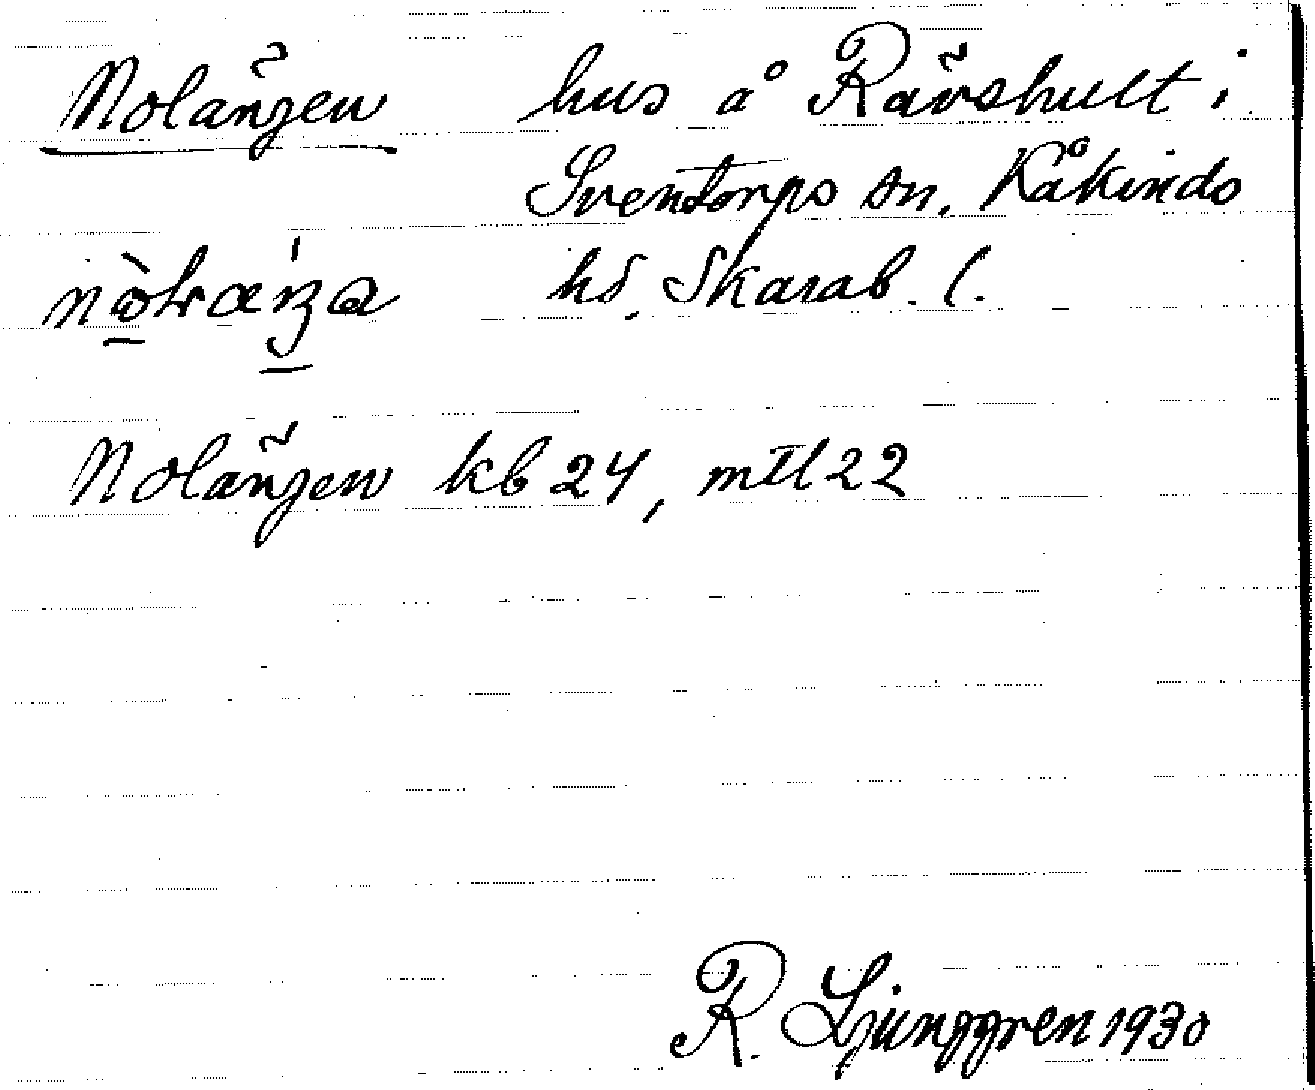 Nolängen hus å Rävshult i
Sventorps sn. Kåkinds
hd, Skarab. l.
Nolängen kb 24, mtl 22
R. Ljunggren 1930